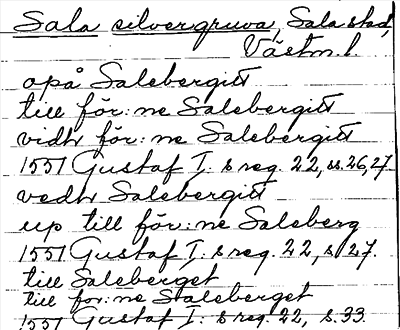 Sala silvergruva, Sala stad,
Västm. l.
opå Salebergitt
till för:ne Salebergitt
vidh för:ne Salebergitt
1551 Gustaf I:s reg. 22, ss. 26, 27.
vedh Salebergitt
up till för:ne Saleberg
1551 Gustaf I:s reg. 22, s. 27.
till Saleberget
till for:ne Staleberget
1551 Gustaf I:s reg. 22, s. 33.